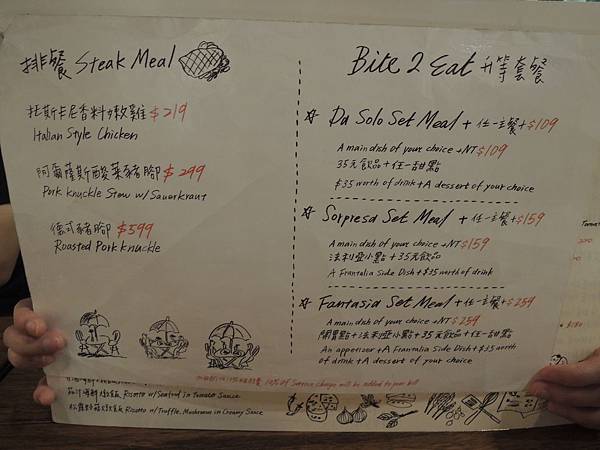 排餐 Steak Meal
托斯卡尼香料嫩雞 $219
Italian Style Chicken
阿爾薩斯酸菜豬腳 $299
Pork Knuckle Stew w/ Sauerkraut
德式豬腳 $599
Roasted Pork Knuckle
Bite 2 Eat 升等套餐
Da Solo Set Meal + 任一主餐 + $109
A main dish of your choice + NT $109
35元飲品 + 任一甜點
$35 worth of drink + A dessert of your choice
Sorpresa Set Meal + 任一主餐 + $159
A main dish of your choice + NT $159
法利亞小點 + 35元飲品
A Frantalia Side Dish + $35 worth of drink
Fantasia Set Meal + 任一主餐 + $259
A main dish of your choice + NT $259
開胃點 + 法利亞小點 + 35元飲品 + 任一甜點
An appetizer + A Frantalia Side Dish + $35 worth
of drink + A dessert of your choice
10% of Service charge will be added to your bill
Risotto w/ Seafood in Tomato Sauce
Risotto w/ Truffle, Mushroom in Creamy Sauce